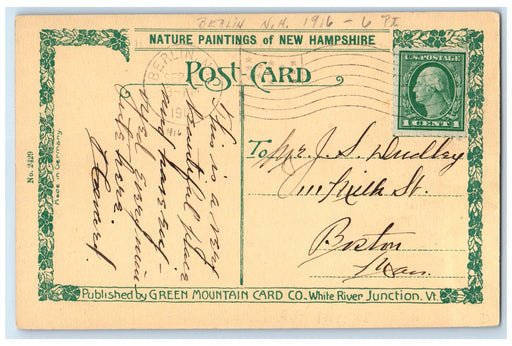 BERLIN N.H. 1916 -
NATURE PAINTINGS OF NEW HAMPSHIRE
BERLIN
SEP
1916
POST-CARD
U.S. POSTAGE
1 CENT 1
This is a very
beautiful place
and
here.
To Mr. J. S. Dudley
111 Milk St.
Boston
Mass.
No. 2429
Made in Germany.
Published by GREEN MOUNTAIN CARD CO., White River Junction, Vt.